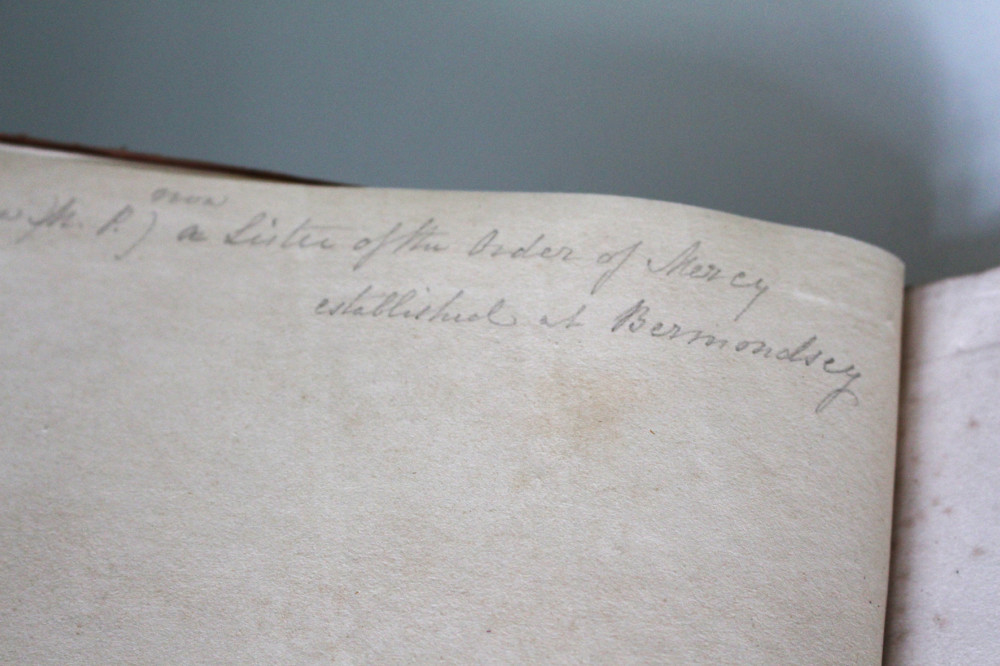 now
M. P.) a Sister of the Order of Mercy
established at Bermondsey